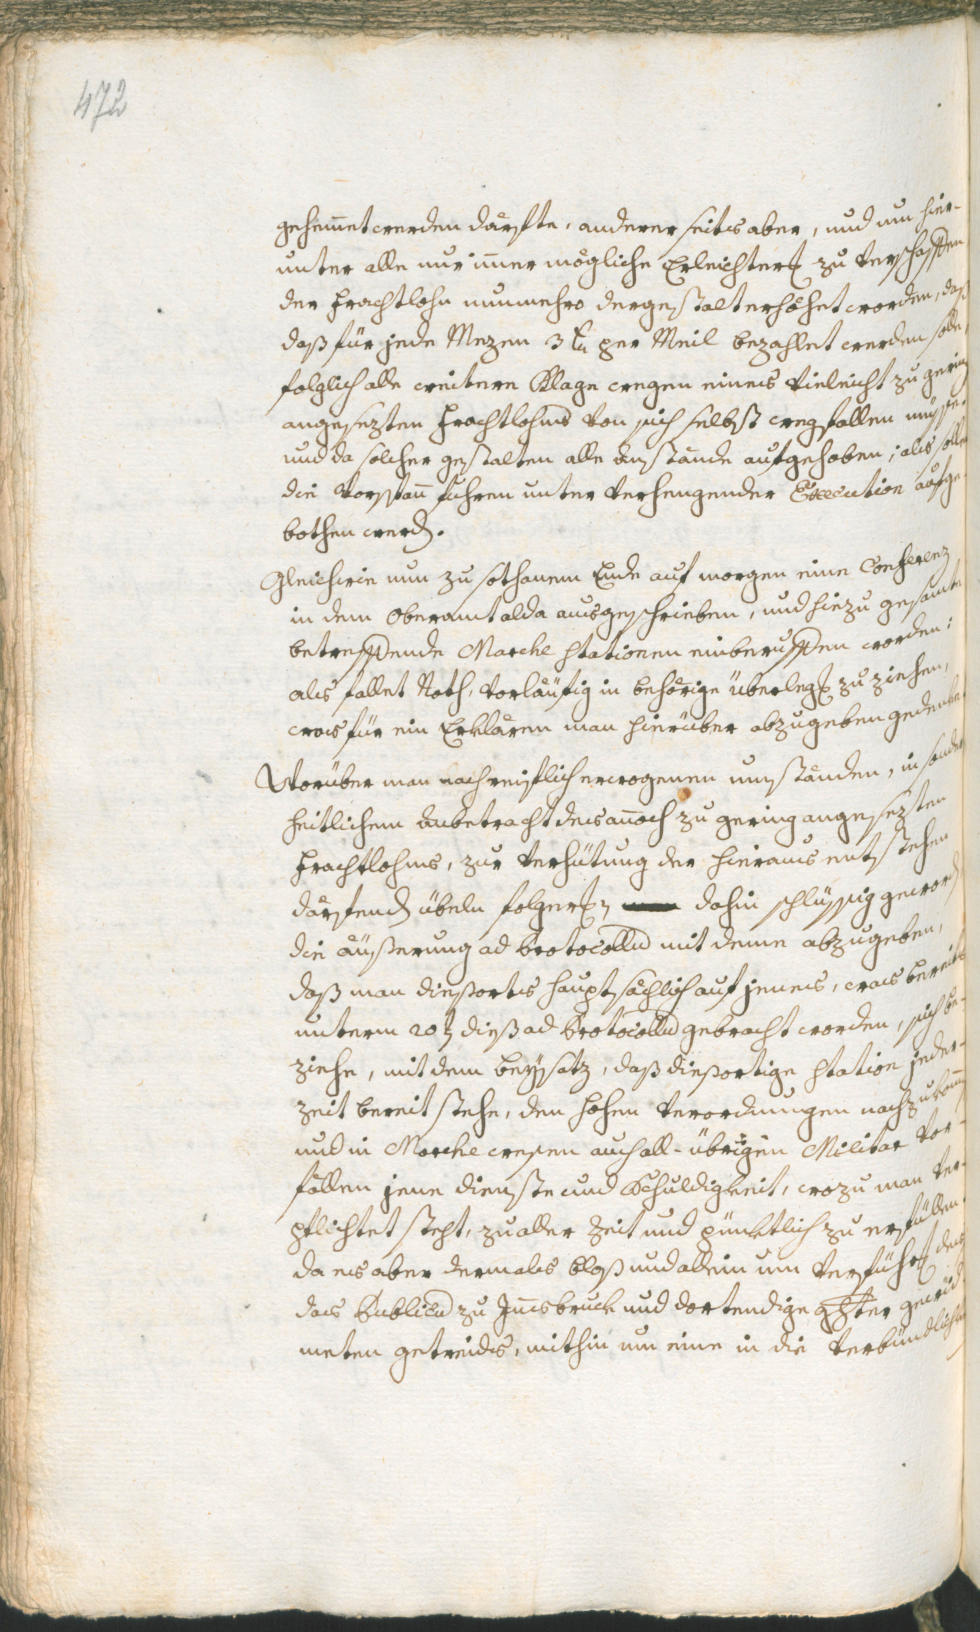 472
gehemet werden därfte, anderer seits aber, und um hier-
unter alle nur imer mögliche Erleichterg zu verschaffen
der Frachtlohn nunmehro dergestalt erhöhet worden, daß
daß für jede Mezen 3 xr per Meil bezahlet werden solle,
folglich alle weitere Klage wegen eines vieleicht zu gering
angesezten Frachtlohns von sich selbst wegfallen müsse.
und da solcher gestalten alle Anstände aufgehoben; als solle
die Vorspann fuhren unter verhengender Execution aufge-
bothen werd.
Gleichwie nun zu sothanem Ende auf morgen eine Conferenz
in dem Oberamt alda ausgeschrieben, und hiezu gesamte
betreffende Marche Stationen einberuffen worden:
als fallet Noth, vorläufig in behörige überlegg zu ziehen,
was für ein Erklären man hierüber abzugeben gedenke
Worüber man nach reiflich erwogenen umständen, in sonder
heitlichem Anbetracht des anoch zu gering angesezten
Frachtlohns, zur Verhütung der hieraus entstehen
därfend übeln folgerg dahin schlüssig geword
die äußerung ad Protocollu mit deme abzugeben,
daß man dießorts hauptsächlich auf jenes, was bereits
unterm 20t dieß ad Protocollu gebracht worden, sich be-
ziehe, mit dem beysatz, daß dießortige Station jeder-
zeit bereit stehe, den hohen Verordnungen nachzukom
und in Marche wesen auch all-übrigen Militar Vor-
fällen jene dienste und Schuldigkeit, wozu man ver-
pflichtet steht, zu aller Zeit und pünktlich zu erfüllen.
da es aber dermals bloß und allein um Verführg des
das Publicu zu Insbruck und dortendige
meten getreids, mithin um eine in die Verbündlich